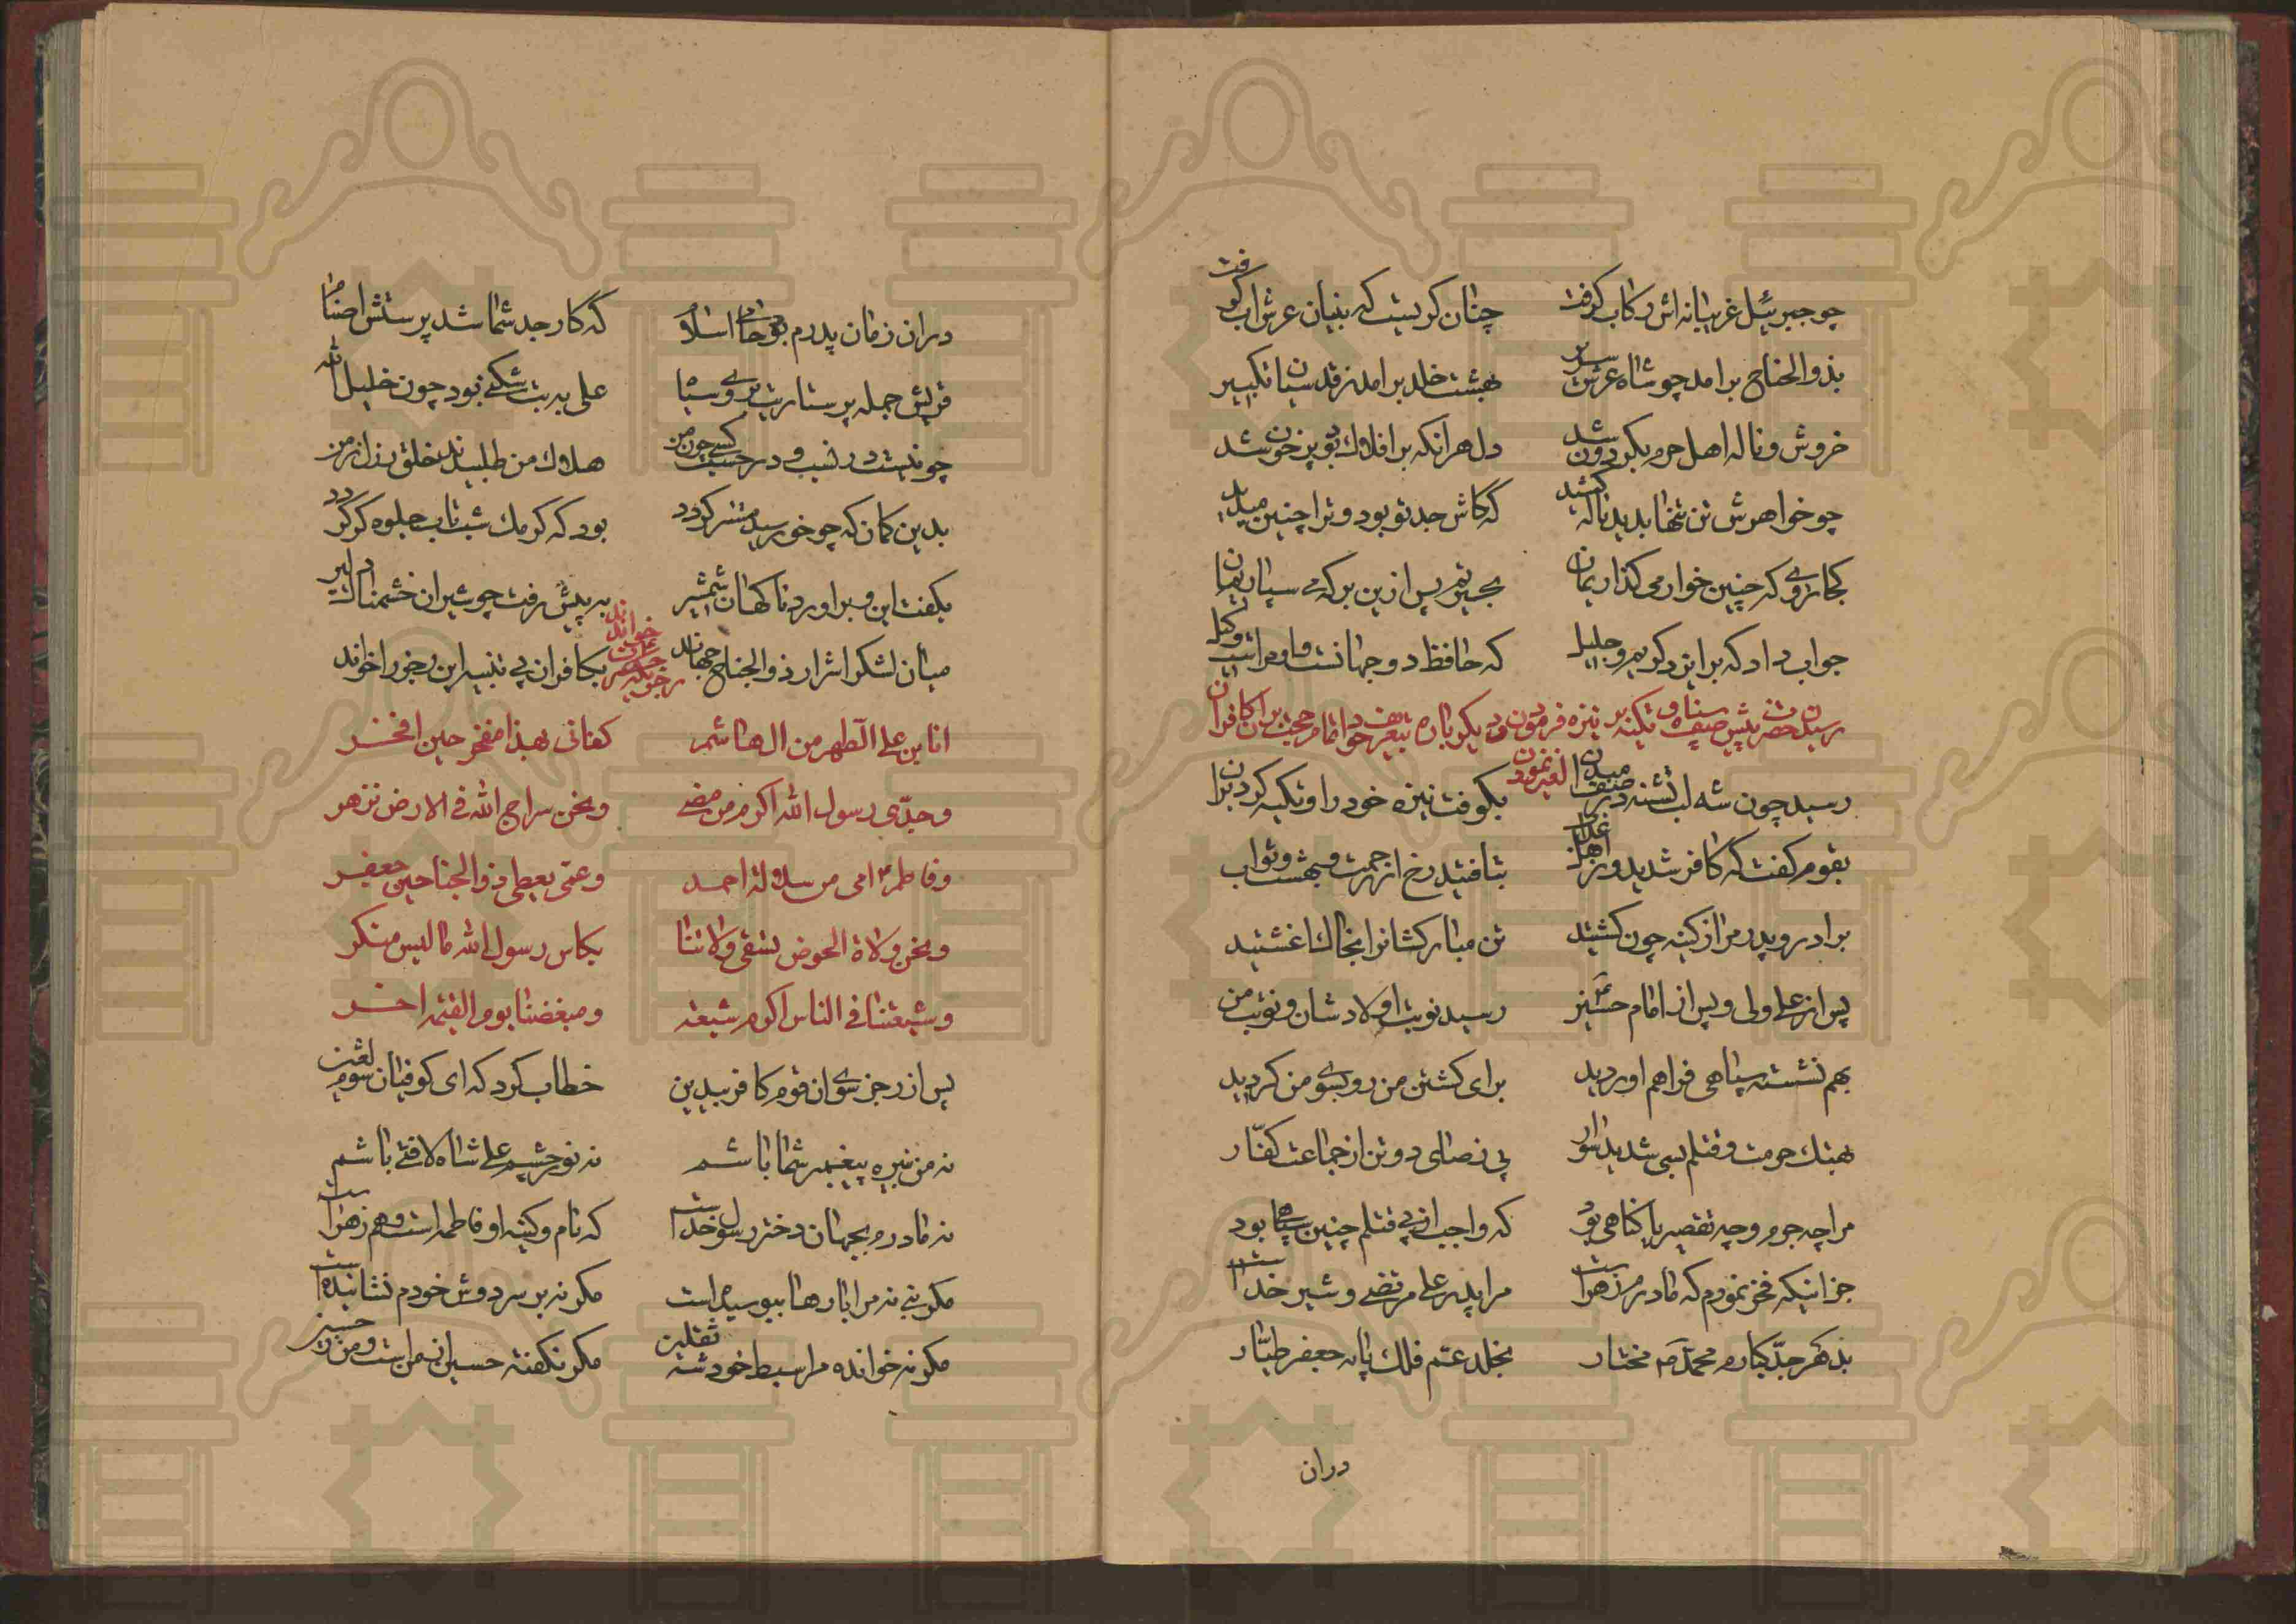 چو جبرئیل غریبانه اش رکاب گرفت چنان گریست که بنیان عرش اب گرفت
بذوالجناح برامد چو شاه عرش سریر بهشت خلد برامد ز قدسیان تکبیر
خروش و ناله اهل حرم بکردون شد دل هرانکه بر افلاک بود پر خون شد
چو خواهرش تن تنها بدید ناله کشید که کاش جد تو بود و ترا چنین میدید
کجا روی که چنین خوار می کذاریمان بجز تو پس ازین بر که می سپاریمان
جواب داد که بر ایزد کریم و جلیل که حافظ دو جهانست و مر است وکیل
رسیدن حضرت پیش صف سپاه و تکیه بر نیزه فرمودن و دیکر باره تعریف خود و اتمام حجت بران کافران لعین نمودن
رسید چون شه لب تشنه در صف میدان بکوفت نیزه خود را و تکیه کرد بران
بقوم کفت که کافر شدید و ز اهل عذاب بتافتید رخ از رحمت و بهشت و ثواب
برادر و پدرم را ز کینه چون کشتید تن مبارکشانرا بخاک اغشتید
پس از علی ولی و پس از امام حسن رسید نوبت اولادشان و نوبت من
بهم نشسته سپاهی فراهم اوردید برای کشتن من رو بسوی من کردید
بهتک حرمت و قتلم بسی شدید سوار پی رضای دو تن از جماعت کفّار
مرا چه جرم و چه تقصیر یا کناهی بود که واجب از پی قتلم چنین سپاهی بود
جز اینکه فخر نمودم که مادرم زهراست مرا پدر علی مرتضی و شیر خداست
بذکر جدّ کبارم محمد مختار بخلد عمّم فلک پایه جعفر طیّار
دران
دران زمان پدرم بود حامی اسلام که کار جد شما شد پرستش اصنام
قریش جمله پرستار بت علی به بت شکنی بود چون خلیل الله
چو نیست در نسب و در حسب کسی چون من هلاک من طلبیدند خلق
بدین کمان که چو خورشید مستتر کردد بود که کرمک شب تاب جلوه کر کردد
بکفت این و براورد ناکهان شمشیر به پیش رفت چو شیران خشمناک دلیر
میان لشکر اشرار ذوالجناح جهاند بکافران پی تنبیه این رجز را خواند
رجزیکه حضرت خواندند
انا بن علی الطهر من ال هاشم کفانی بهذا مفخر حین افخر
و جدّی رسول الله اکرم من مضی و نحن سراج الله فی الارض نزهر
و فاطم امی من سلالة احمد و عمی یدعی ذو الجناحین جعفر
و نحن ولاة الحوض نسقی ولاتنا بکاس رسول الله ما لیس منکر
و شیعتنا فی الناس اکرم شیعة و مبغضنا یوم القیمه اخسر
پس از رجز سوی ان قوم کافر بیدین خطاب کرد که ای کوفیان شوم لعین
نه من نبیره پیغمبر شما باشم نه نور چشم علی شاه لافتی باشم
نه مادرم بجهان دختر رسول خداست که نام و کنیه او فاطمه است و هم زهراست
مکر نبی نه مرا بارها ببوسیده است مکر نه بر سر دوش خودم نشانیده است
مکر نه خوانده مرا سبط خود شه ثقلین مکر نکفته حسین از من است و من ز حسین